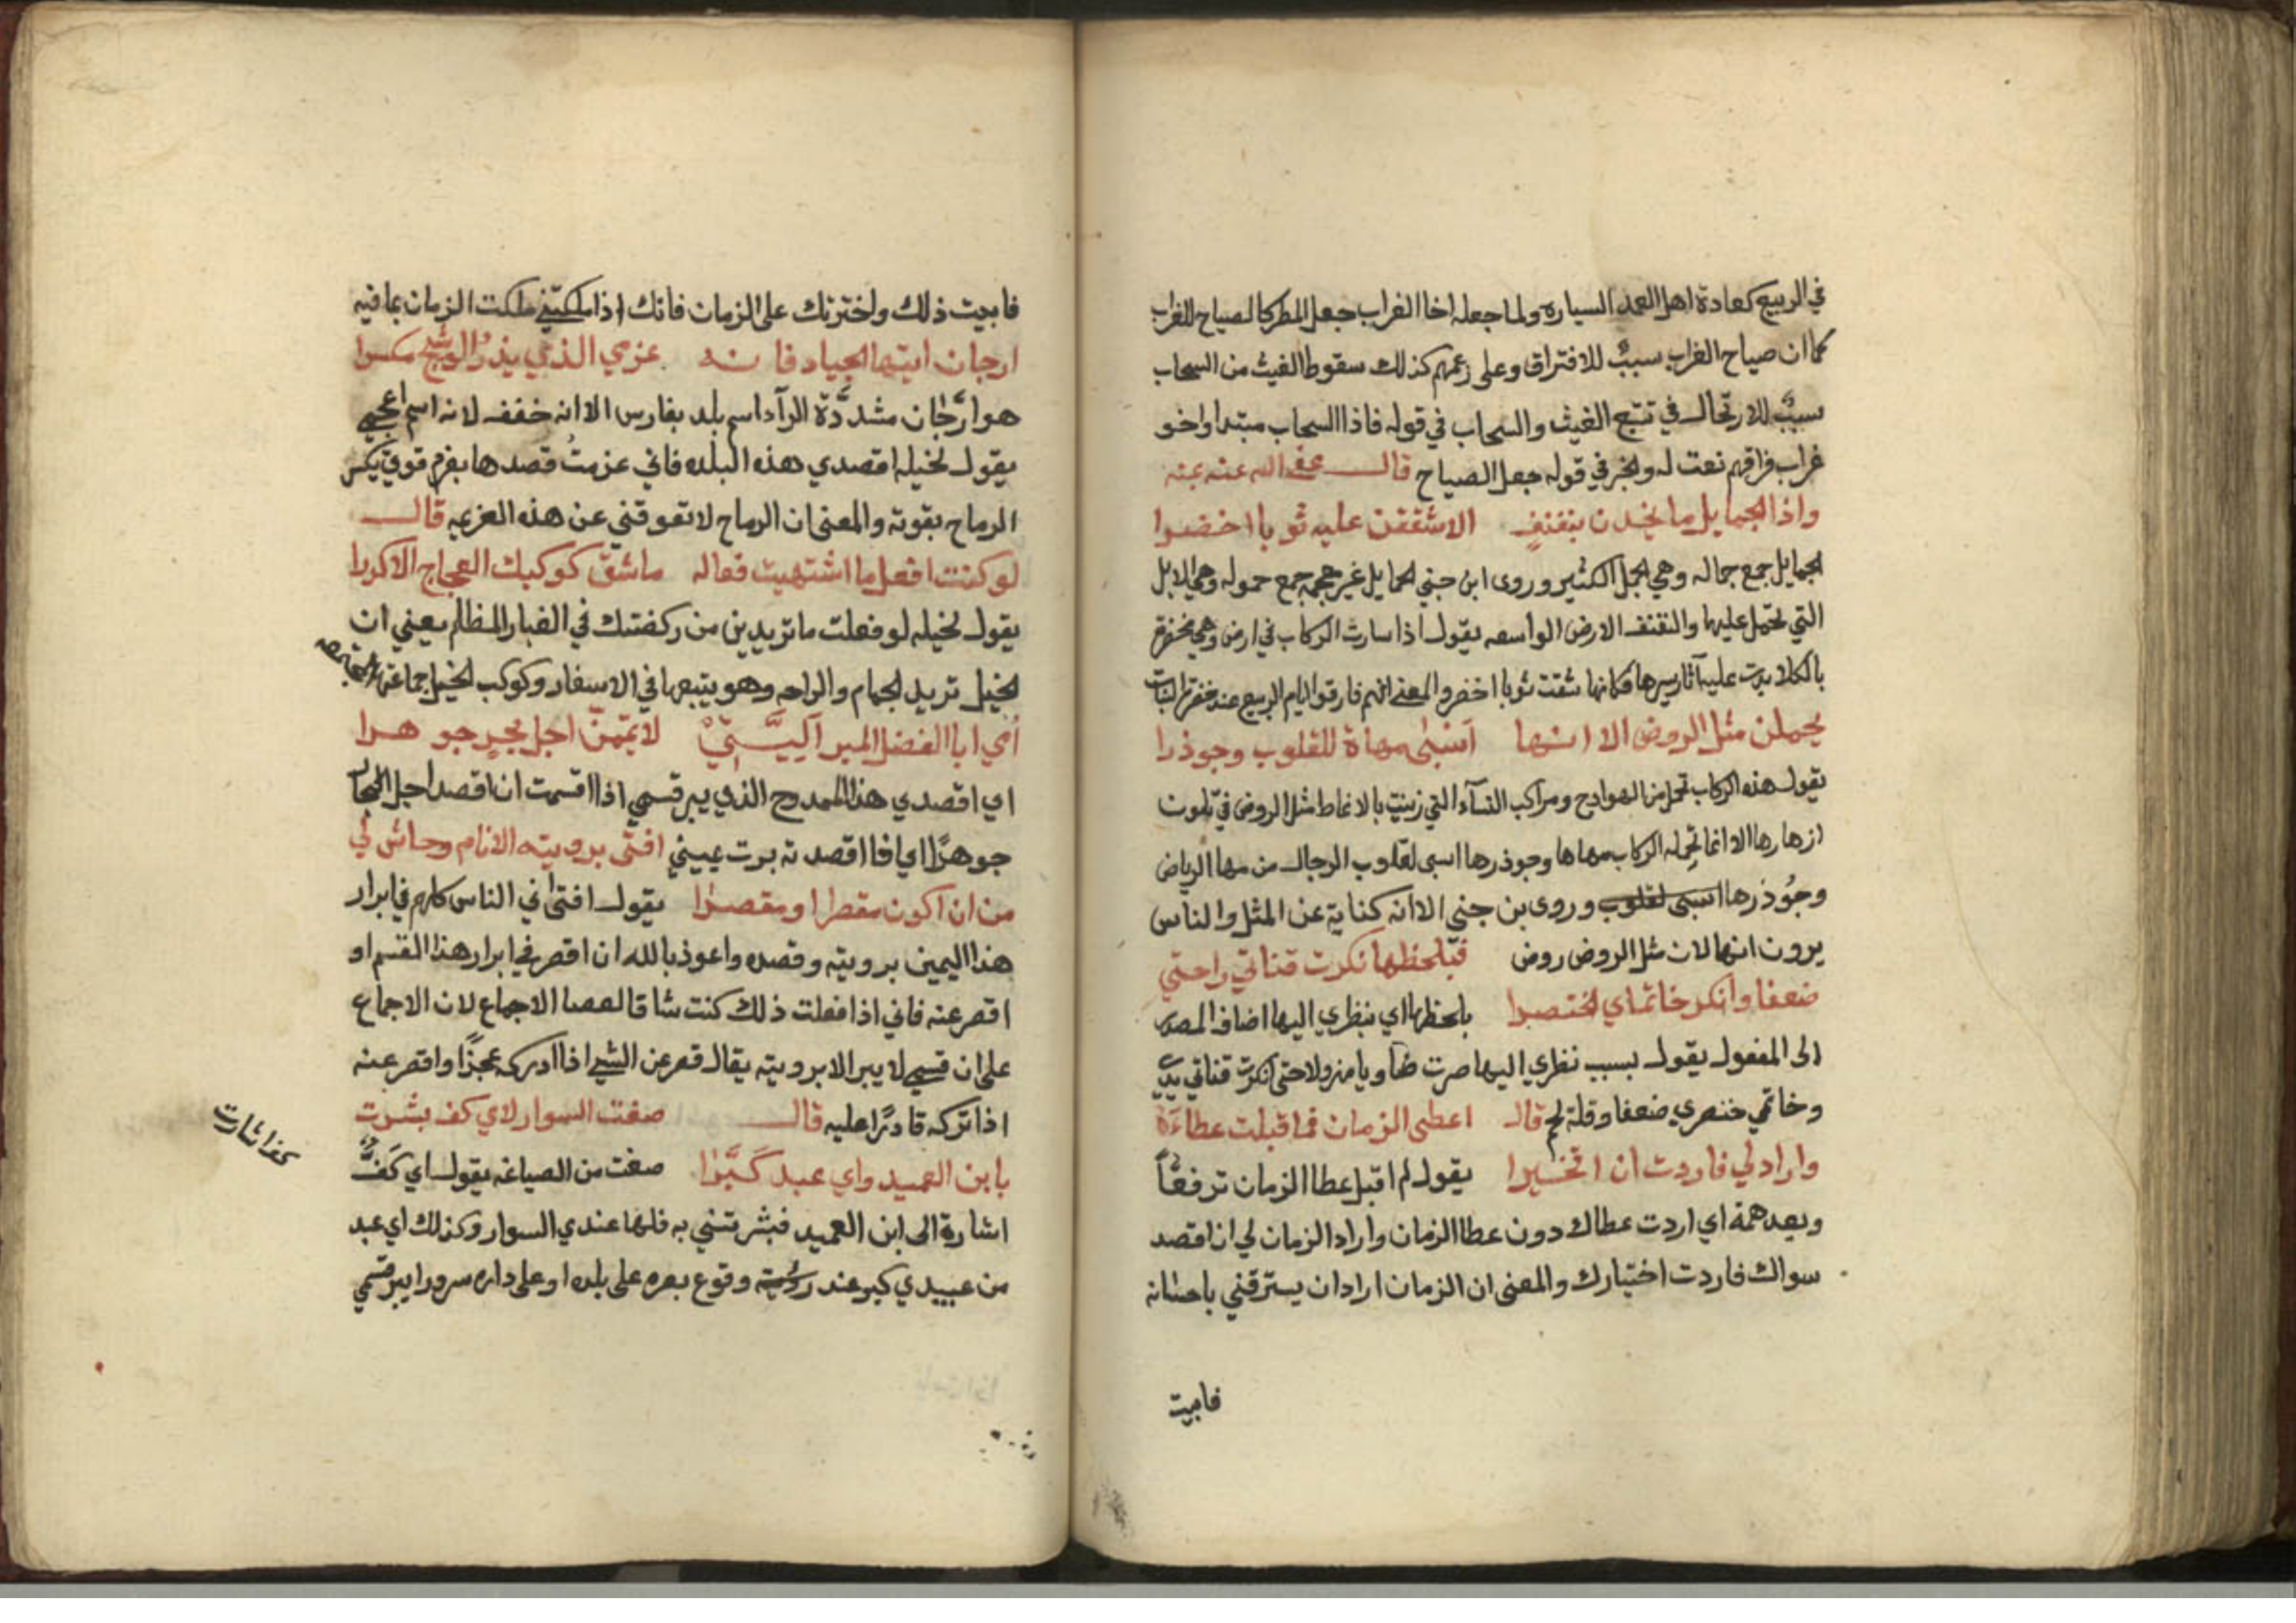 في الربيع كعادة اهل العمد السياره ولما جعله اخا الغراب جعل المطر كالصياح للغراب
كما ان صياح الغراب سببٌ للافتراق وعلى زعمهم كذلك سقوط الغيث من السحاب
سببٌ للارتحال في تتبع الغيث والسحاب في قوله فاذا السحاب مبتدا واخو
غراب فراقهم نعت له والخبر في قوله جعل الصياح قال عفى الله عنه
واذا الجمايل ما يخدن بنفنفٍ الا شققن عليه ثوبا اخضرا
الجمايل جمع جماله وهي الجمل الكثير وروى ابن جني الحمايل غير معجمه جمع حموله وهي الابل
التي تحمل عليها والنفنف الارض الواسعه يقول اذا سارت الركاب في ارض وهي مخضرة
بالكلا بدت عليه آثار سيرها فكانها شقت ثوبا اخضر والمعنى انهم فارقوا ايام الربيع عند خضرة النبات
يحملن مثل الروض الا انها اسبى مهاة للقلوب وجوذرا
يقول هذه الركاب تحمل من الهوادج ومراكب النسآء التي زينت بالانماط مثل الروض في تلون
ازهارها الا انما تحمله الركاب مهاها وجوذرها اسبى لقلوب الرجال من مها الرياض
وجُوذرها اسبى لقلوب وروى بن جني الا انه كناية عن المثل والناس
يرون انها لان مثل الروض روض فبلحظها نكرت قناتي راحتي
ضعفا وانكر خاتماي الخنصرا بلحظها اي بنظري اليها اضاف المصدر
الى المفعول يقول بسبب نظري اليها صرت ضاويا مهزولا حتى انكرت قناتي يدي
وخاتمي خنصري ضعفا وقلة لحم قال اعطى الزمان فما قبلت عطاءَهُ
واراد لي فاردت ان اتخيرا يقول لم اقبل عطا الزمان ترفعًا
وبعد همة اي اردت عطاك دون عطا الزمان واراد الزمان لي ان اقصد
سواك فاردت اختيارك والمعنى ان الزمان اراد ان يسترقني باحسانه
فابيت
فابيت ذلك واخترتك على الزمان فانك اذا ملكتني ملكت الزمان بما فيه
ارجان ايتها الجياد فانه عزمي الذي يذرُ الوشيج مكسرا
هو ارَّجان مشدَّدة الرآ اسم بلد بفارس الا انه خفف لانه اسم اعجمي
يقول لخيله اقصدي هذه البلده فاني عزمتُ قصدها بعزم قوي يكسر
الرماح بقوته والمعنى ان الرماح لا تعوقني عن هذه العزيمه قال
لو كنت افعل ما اشتهيت فعاله ما شق كوكبك العجاج الاكدرا
يقول لخيله لو فعلت ما تريدين من ركضتك في الغبار المظلم يعني ان
الخيل تريد الجمام والراحه وهو يتبعها في الاسفار وكوكب الخيل جماعتها المجتمعه
أمي ابا الفضل المبر اليَّتيْ لايممنّ اجل بحرٍ جوهرا
اي اقصدي هذا الممدوح الذي يبر قسمي اذا اقسمت ان اقصد اجل البحار
جوهرًا اي فاذا قصدته برت يميني افتى برويته الانام وحاش لي
من ان اكون مقصرا او مقصرا يقول افتاني الناس كلهم في ابرار
هذا اليمين برويته وقصده واعوذ بالله ان اقصر في ابرار هذا القسم او
اقصر عنه فاني اذا فعلت ذلك كنت شاقا لعصا الاجماع لان الاجماع
على ان قسمي لا يبر الا برويته يقال قصر عن الشي اذا ادركه عجزًا واقصر عنه
اذا تركه قادرًا عليه قال صغت السوار لاي كف بشرت
بابن العميد واي عبد كَبَّرا صغت من الصياغه يقول اي كَفٍّ
كف اشارت
اشارة الى ابن العميد فبشرتني به فلها عندي السوار وكذلك اي عبد
من عبيدي كبر عند رؤيته وقوع بصره على بلده او على داره سرورا يبر قسمي